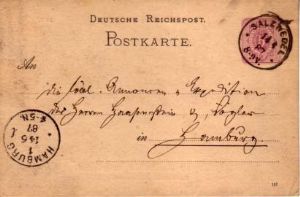 DEUTSCHE REICHSPOST.
POSTKARTE.
SALZWEDEL
An
die löbl. Annoncen Expedition
der Herren Haasenstein & Vogler
in Hamburg
HAMBURG
1
14 5
87
4-5N.